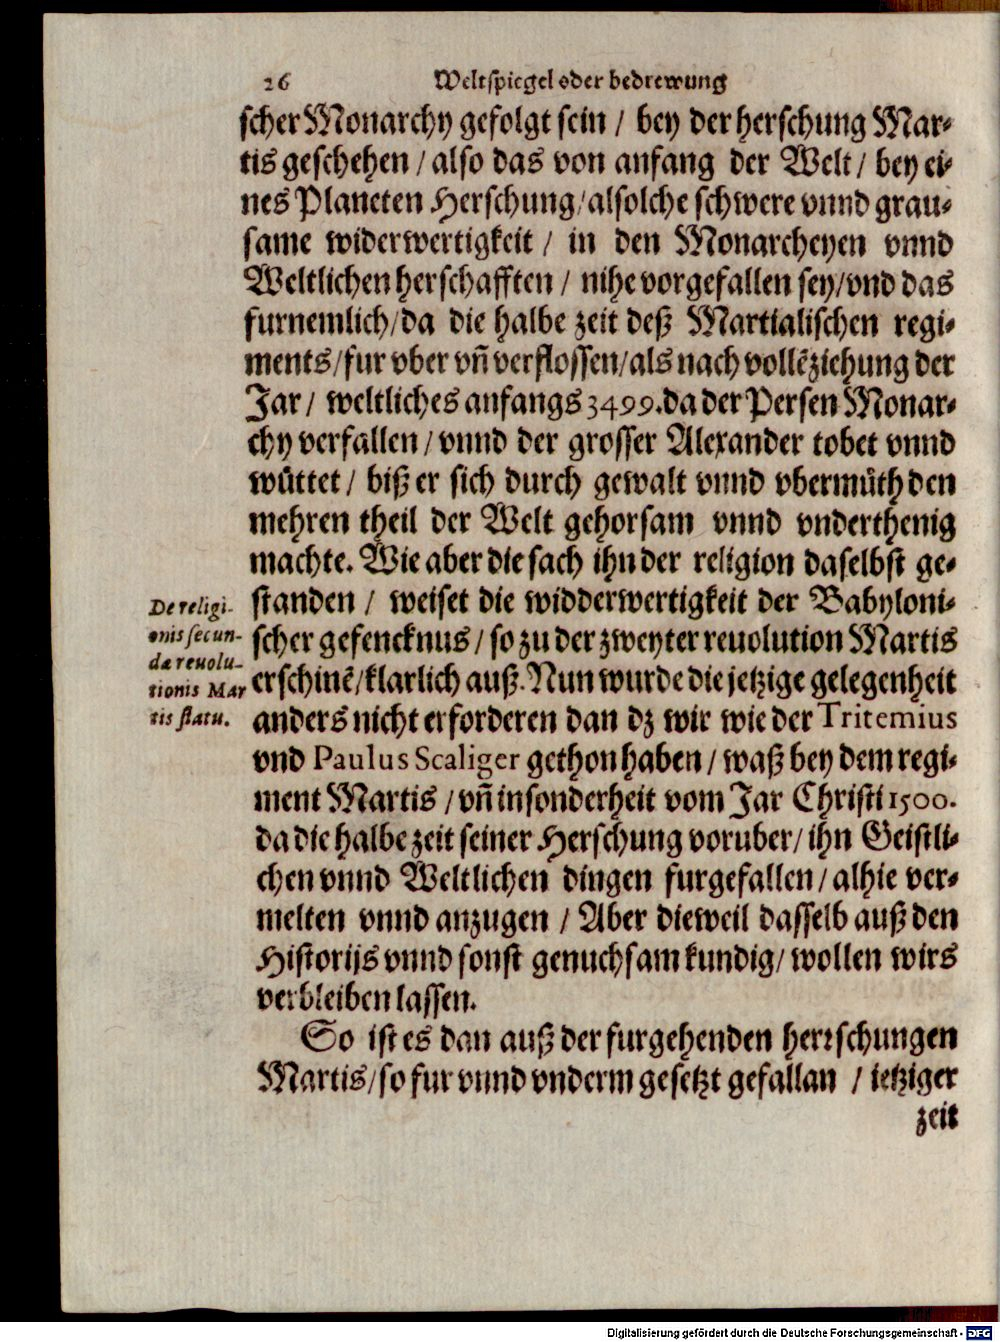 26 Weltspiegel oder bedrewung
scher Monarchy gefolgt sein / bey der herschung Mar-
tis geschehen / also das von anfang der Welt / bey ei-
nes Planeten Herschung/alsolche schwere vnnd grau-
same widerwertigkeit / in den Monarcheyen vnnd
Weltlichen herschafften / nihe vorgefallen sey/vnd das
furnemlich/da die halbe zeit deß Martialischen regi-
ments/fur vber vñ verflossen/als nach vollẽziehung der
Jar / weltliches anfangs 3499.da der Persen Monar-
chy verfallen / vnnd der grosser Alexander tobet vnnd
wuͤttet / biß er sich durch gewalt vnnd vbermuͤth den
mehren theil der Welt gehorsam vnnd vnderthenig
machte. Wie aber die sach ihn der religion daselbst ge-
standen / weiset die widderwertigkeit der Babyloni-
scher gefencknus / so zu der zweyter reuolution Martis
erschinẽ/klarlich auß. Nun wurde die jetzige gelegenheit
anders nicht erforderen dan dz wir wie der Tritemius
vnd Paulus Scaliger gethon haben / waß bey dem regi-
ment Martis / vñ insonderheit vom Jar Christi 1500.
da die halbe zeit seiner Herschung voruber/ ihn Geistli-
chen vnnd Weltlichen dingen furgefallen / alhie ver-
melten vnnd anzugen / Aber dieweil dasselb auß den
Historijs vnnd sonst genuchsam kundig/ wollen wirs
verbleiben lassen.
So ist es dan auß der furgehenden herrschungen
Martis/so fur vnnd vnderm gesetzt gefallan / ietziger
zeit
De religi-
onis secun-
dæ reuolu-
tionis Mar
tis statu.
Digitalisierung gefördert durch die Deutsche Forschungsgemeinschaft - DFG